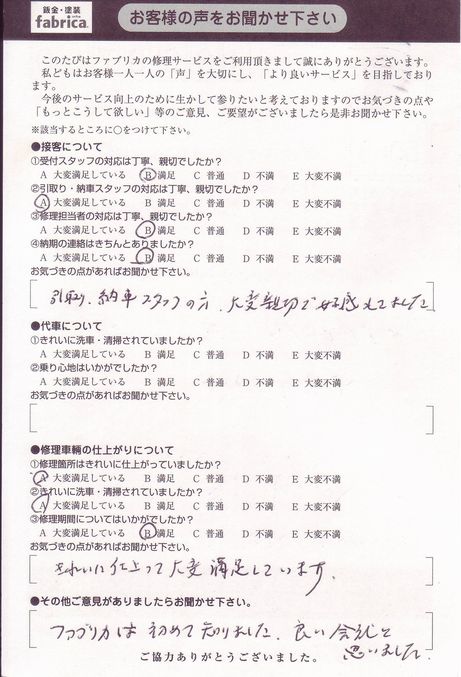 鈑金・塗装
fabrica.
お客様の声をお聞かせ下さい
このたびはファブリカの修理サービスをご利用頂きまして誠にありがとうございます。
私どもはお客様一人一人の「声」を大切にし、「より良いサービス」を目指しており
ます。
今後のサービス向上のために生かして参りたいと考えておりますのでお気づきの点や
「もっとこうして欲しい」等のご意見、ご要望がございましたら是非お聞かせ下さい。
※該当するところに○をつけて下さい。
●接客について
①受付スタッフの対応は丁寧、親切でしたか?
A 大変満足している B 満足 C 普通 D 不満 E 大変不満
②引取り・納車スタッフの対応は丁寧、親切でしたか?
A 大変満足している B 満足 C 普通 D 不満 E 大変不満
③修理担当者の対応は丁寧、親切でしたか?
A 大変満足している B 満足 C 普通 D 不満 E 大変不満
④納期の連絡はきちんとありましたか?
A 大変満足している B 満足 C 普通 D 不満 E 大変不満
お気づきの点があればお聞かせ下さい。
引取り、納車スタッフの方、大変親切で好感もてました
●代車について
①きれいに洗車・清掃されていましたか?
A 大変満足している B 満足 C 普通 D 不満 E 大変不満
②乗り心地はいかがでしたか?
A 大変満足している B 満足 C 普通 D 不満 E 大変不満
お気づきの点があればお聞かせ下さい。
●修理車輌の仕上がりについて
①修理箇所はきれいに仕上がっていましたか?
A 大変満足している B 満足 C 普通 D 不満 E 大変不満
②きれいに洗車・清掃されていましたか?
A 大変満足している B 満足 C 普通 D 不満 E 大変不満
③修理期間についてはいかがでしたか?
A 大変満足している B 満足 C 普通 D 不満 E 大変不満
お気づきの点があればお聞かせ下さい。
きれいに仕上って大変満足しています。
●その他ご意見がありましたらお聞かせ下さい。
ファブリカは初めて知りました。良い会社と
思いました。
ご協力ありがとうございました。